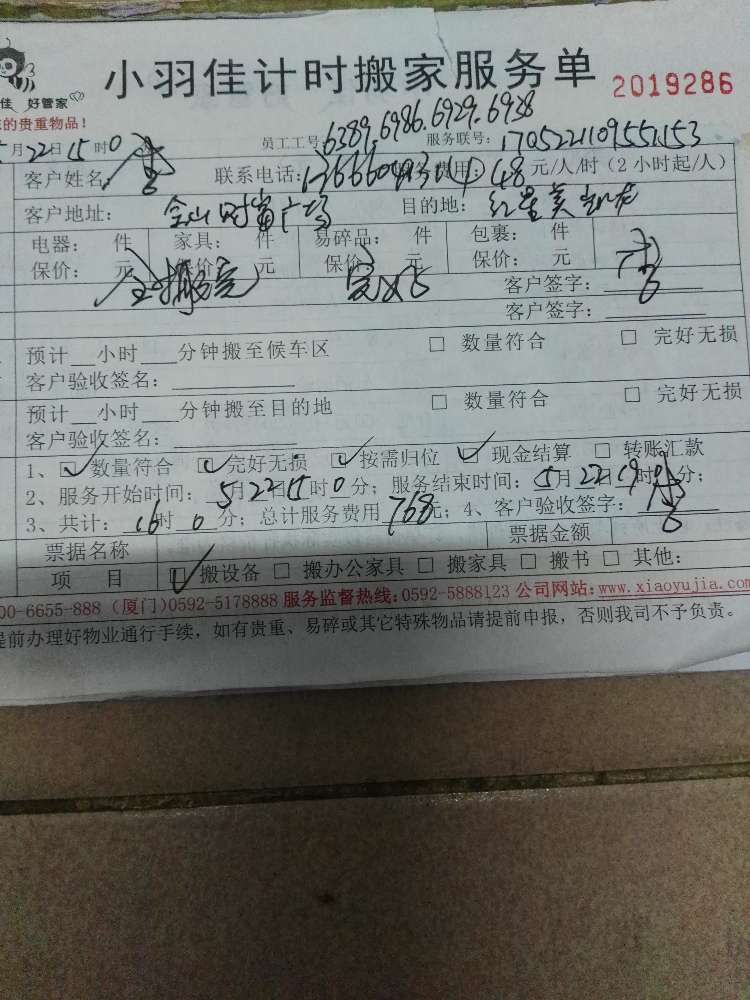 小羽佳计时搬家服务单 2019286
佳 好管家
的贵重物品！
员工工号: 6389.6986.6929.6938 服务联号: 1705221109551153
5月22日15时0
客户姓名 李 联系电话: 费用: 48元/人/时（2小时起/人）
客户地址: 金山财富广场 目的地: 红星美凯龙
电器: 件 家具: 件 易碎品: 件 包裹: 件
保价: 元 保价: 元 保价 元 保价: 元 李
全搬完 完好 客户签字:
客户签字:
预计__小时___分钟搬至候车区 □ 数量符合 □ 完好无损
客户验收签名:
预计__小时___分钟搬至目的地 □ 数量符合 □ 完好无损
客户验收签名:
1、☑数量符合 ☑完好无损 ☑按需归位 ☑现金结算 □ 转账汇款
2、服务开始时间: 5月22日15时0分; 服务结束时间: 5月22日19时0分;
3、共计: 16时 0分; 总计服务费用768元; 4、客户验收签字: 李
票据名称 票据金额
项 目 ☑搬设备 □ 搬办公家具 □ 搬家具 □ 搬书 □ 其他:
00-6655-888 (厦门)0592-5178888 服务监督热线:0592-5888123 公司网站:www.xiaoyujia.com
提前办理好物业通行手续，如有贵重、易碎或其它特殊物品请提前申报，否则我司不予负责。